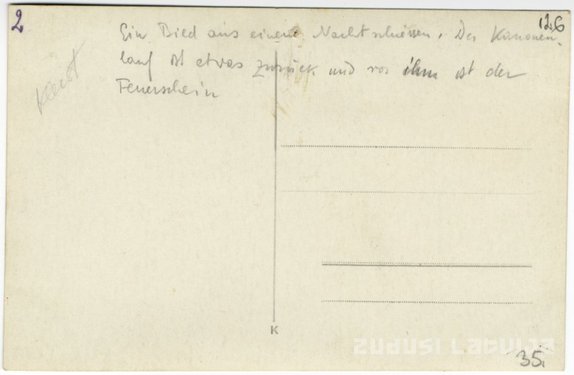 2
126
Ein Bild aus einem Nachtschiessen. Der Kanonen-
lauf ist etwas zurück und vor ihm ist der
Feuerschein
K
zudusi Latvija
35,